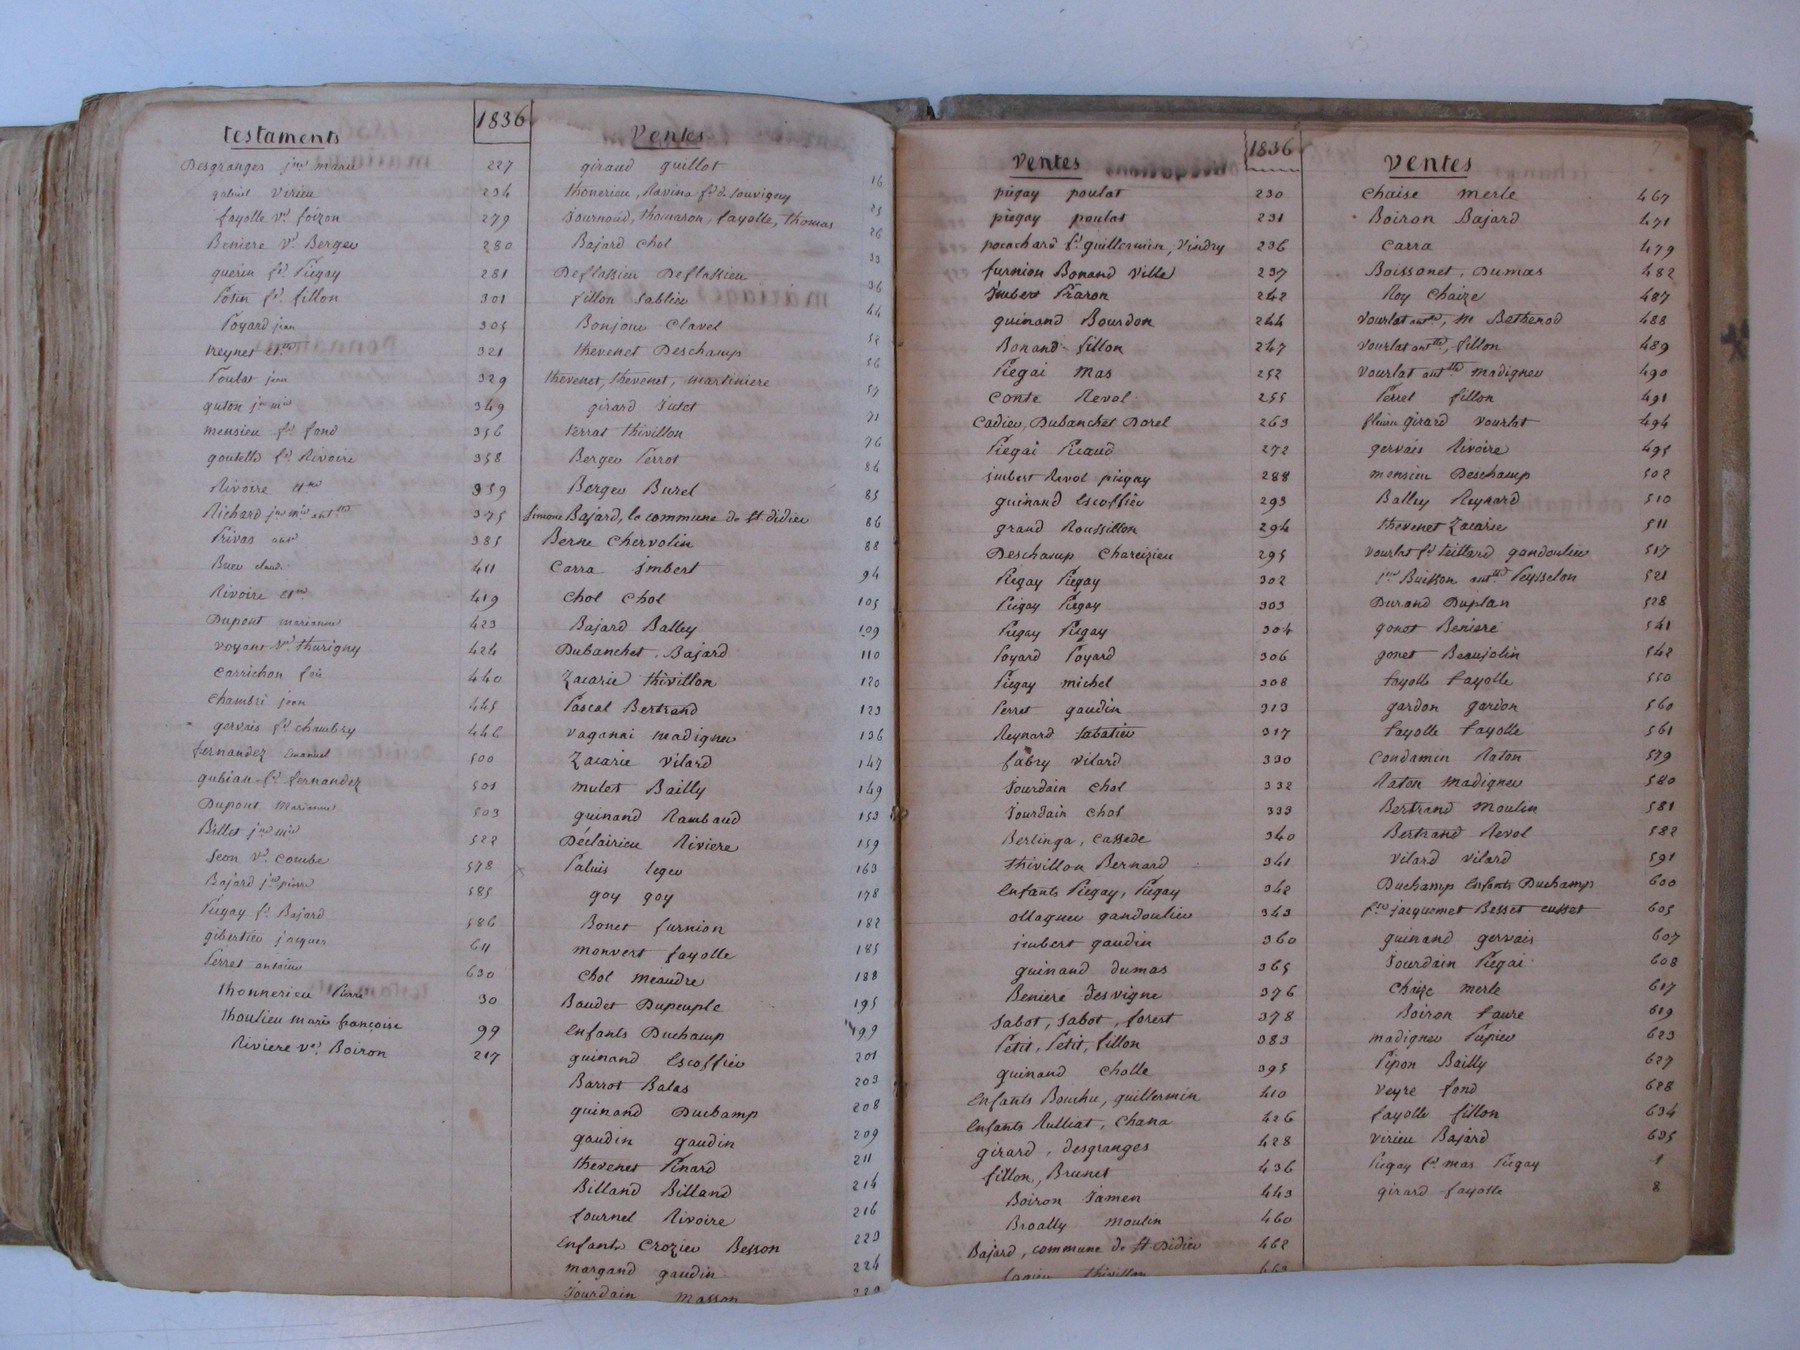 testaments
1836
Desgranges jne marie 227
gabriel Virieu 234
fayolle ve foizon 279
Beniere ve Berger 280
guerin fe Piegay 281
Potin fe fillon 301
Poyard jean 305
treynet etne 321
Poulat jean 329
guton 349
mensieu fe fond 356
goutelle fe Rivoire 358
Rivoire etne 359
Richard 375
Privas ane 385
Buer claude 411
Rivoire etne 419
Dupont marianne 423
voyant ve thurigny 424
Carrichon 440
Chambri jean 445
gervais fe chambry 446
fernandez Emanuel 500
gubian fe fernandez 501
Dupont Marianne 503
Billet 522
Seon ve Combe 578
Bajard jne pierre 585
Piegay fe Bajard 586
gibertier jacques 611
Perret antoine 630
thonnerieu Pierre 30
thoulieu marie françoise 99
Riviere ve Boiron 217
Ventes
giraud guillot 16
thonerieu, Ravina fe de Souvigny 23
Journoud, thomason, fayolle, thomas 26
Bajard Chol 33
Deflassieu Deflassieu 36
fillon Sablier 44
Bonjour Clavel 52
thevenet Deschamp 56
thevenet, thevenet, martiniere 57
girard Jutet 71
ferrat thivillon 76
Berger Perrot 84
Berger Burel 85
Simone Bajard, la commune de St didier 86
Berne Chervolin 88
Carra Imbert 94
Chol Chol 105
Bajard Balley 109
Dubanchet, Bajard 110
Zacarie thivillon 120
Pascal Bertrand 123
vaganai madignier 136
Zacarie vilard 147
mulet Bailly 149
guinand Rambaud 153
Déclairieu Riviere 159
Paluis leger 163
goy goy 178
Bonet furnion 182
monvert fayolle 185
Chol meaudre 188
Baudet Dupeuple 195
enfants Duchamp 199
guinand Escoffier 201
Barrot Balas 203
guinand Duchamp 208
gaudin gaudin 209
thevenet Pinard 211
Billand Billand 214
fournel Rivoire 216
enfants Crozier Besson 223
margand gaudin 224
Jourdain Masson 229
ventes
1836
piegay poulat 230
piegay poulat 231
pocachard fe guillermin, Vindry 236
furnion Bonand Ville 237
Imbert Praron 242
guinand Bourdon 244
Bonand fillon 247
Piegai Mas 252
Conte Revol 255
Cadier, Dubanchet Dorel 263
Piegai Picaud 272
imbert Revol piegay 288
guinand Escoffier 293
grand Roussillon 294
Deschamp Charezieu 295
Piegay Piegay 302
Piegay Piegay 303
Piegay Piegay 304
Poyard Poyard 306
Piegay michel 308
Perret gaudin 313
Reynard Sabatier 317
fabry vilard 330
Jourdain Chol 332
Jourdain Chol 333
Berlinga, Cassede 340
thivillon Bernard 341
enfants Piegay, Piegay 342
ollagner gandoulier 343
imbert gaudin 360
guinand dumas 365
Beniere desvigne 376
Sabot, Sabot, forest 378
Petit, Petit, fillon 383
guinand Cholle 395
enfants Bouchu, guillermin 410
enfants Rulliat, Chana 426
girard, desgranges 428
fillon, Brunet 436
Boiron Jamen 443
Broally moulin 460
Bajard, commune de St Didier 462
thivillon 463
ventes
Chaise Merle 467
Boiron Bajard 471
Carra 479
Boissonet, Dumas 482
Roy Chaize 487
vourlat antne, M Bethenod 488
vourlat antne, fillon 489
vourlat antne madignier 490
Perret fillon 491
fleurie girard vourlat 494
gervais Rivoire 495
mensieu Deschamp 502
Balley Reynard 510
thevenet Zacarie 511
vourlat fe teillard gandoulier 517
jne Buisson antne Peysselon 521
Durand Duplan 528
gonot Beniere 541
gonet Beaujolin 542
fayolle fayolle 550
gardon gardon 560
fayolle fayolle 561
Condamin Raton 579
Raton Madignier 580
Bertrand Moulin 581
Bertrand Revol 582
vilard vilard 591
Duchamp enfants Duchamp 600
jacquemet Besset cusset 605
guinand gervais 607
Jourdain Piegai 608
Chaize merle 617
Boiron faure 619
madignier Pipier 623
Pipon Bailly 627
veyre fond 628
fayolle fillon 634
virieu Bajard 635
Piegay fe mas Piegay 1
girard fayolle 8